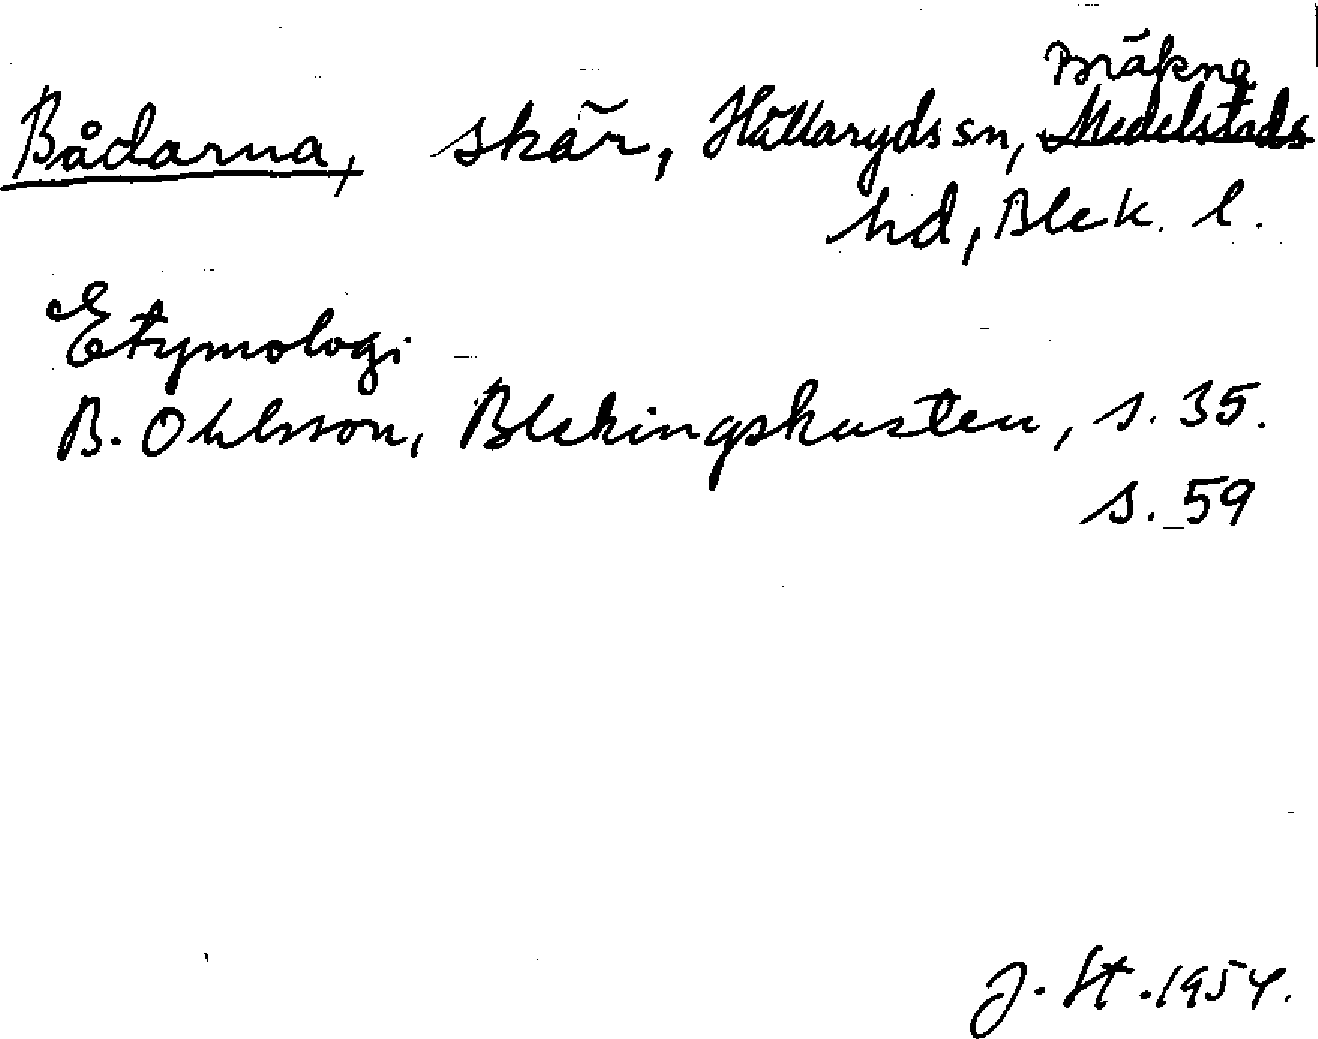 Bräkne
Bådarna, skär, Hällaryds sn, Medelstads
hd, Blek. l.
Etymologi
B. Ohlsson, Blekingskusten, s. 35.
s. 59
J. St. 1954.